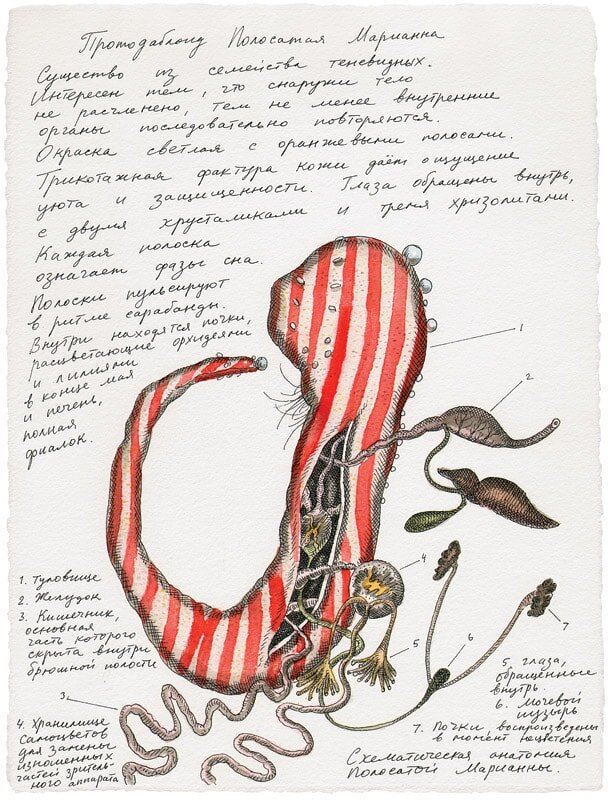 Протодаблоид Полосатая Марианна
Существо из семейства теневидных.
Интересен тем, что снаружи тело
не расчленено, тем не менее внутренние
органы последовательно повторяются.
Окраска светлая с оранжевыми полосами.
Трикотажная фактура кожи даёт ощущение
уюта и защищенности. Глаза обращены внутрь,
с двумя хрусталиками и тремя хризолитами.
Каждая полоска
означает фазы сна.
Полоски пульсируют
в ритме сарабанды.
Внутри находятся почки,
расцветающие орхидеями
и лилиями
в конце мая
и печень,
полная
фиалок.
1
2
4
5
6
7
3
1. Туловище
2. Желудок
3. Кишечник,
основная
часть которого
скрыта внутри
брюшной полости
4. Хранилище
самоцветов
для замены
изношенных
частей зритель-
ного аппарата
5. глаза,
обращенные
внутрь
6. Мочевой
пузырь
7. Почки воспроизведены
в момент нецветения
Схематическая анатомия
Полосатой Марианны.